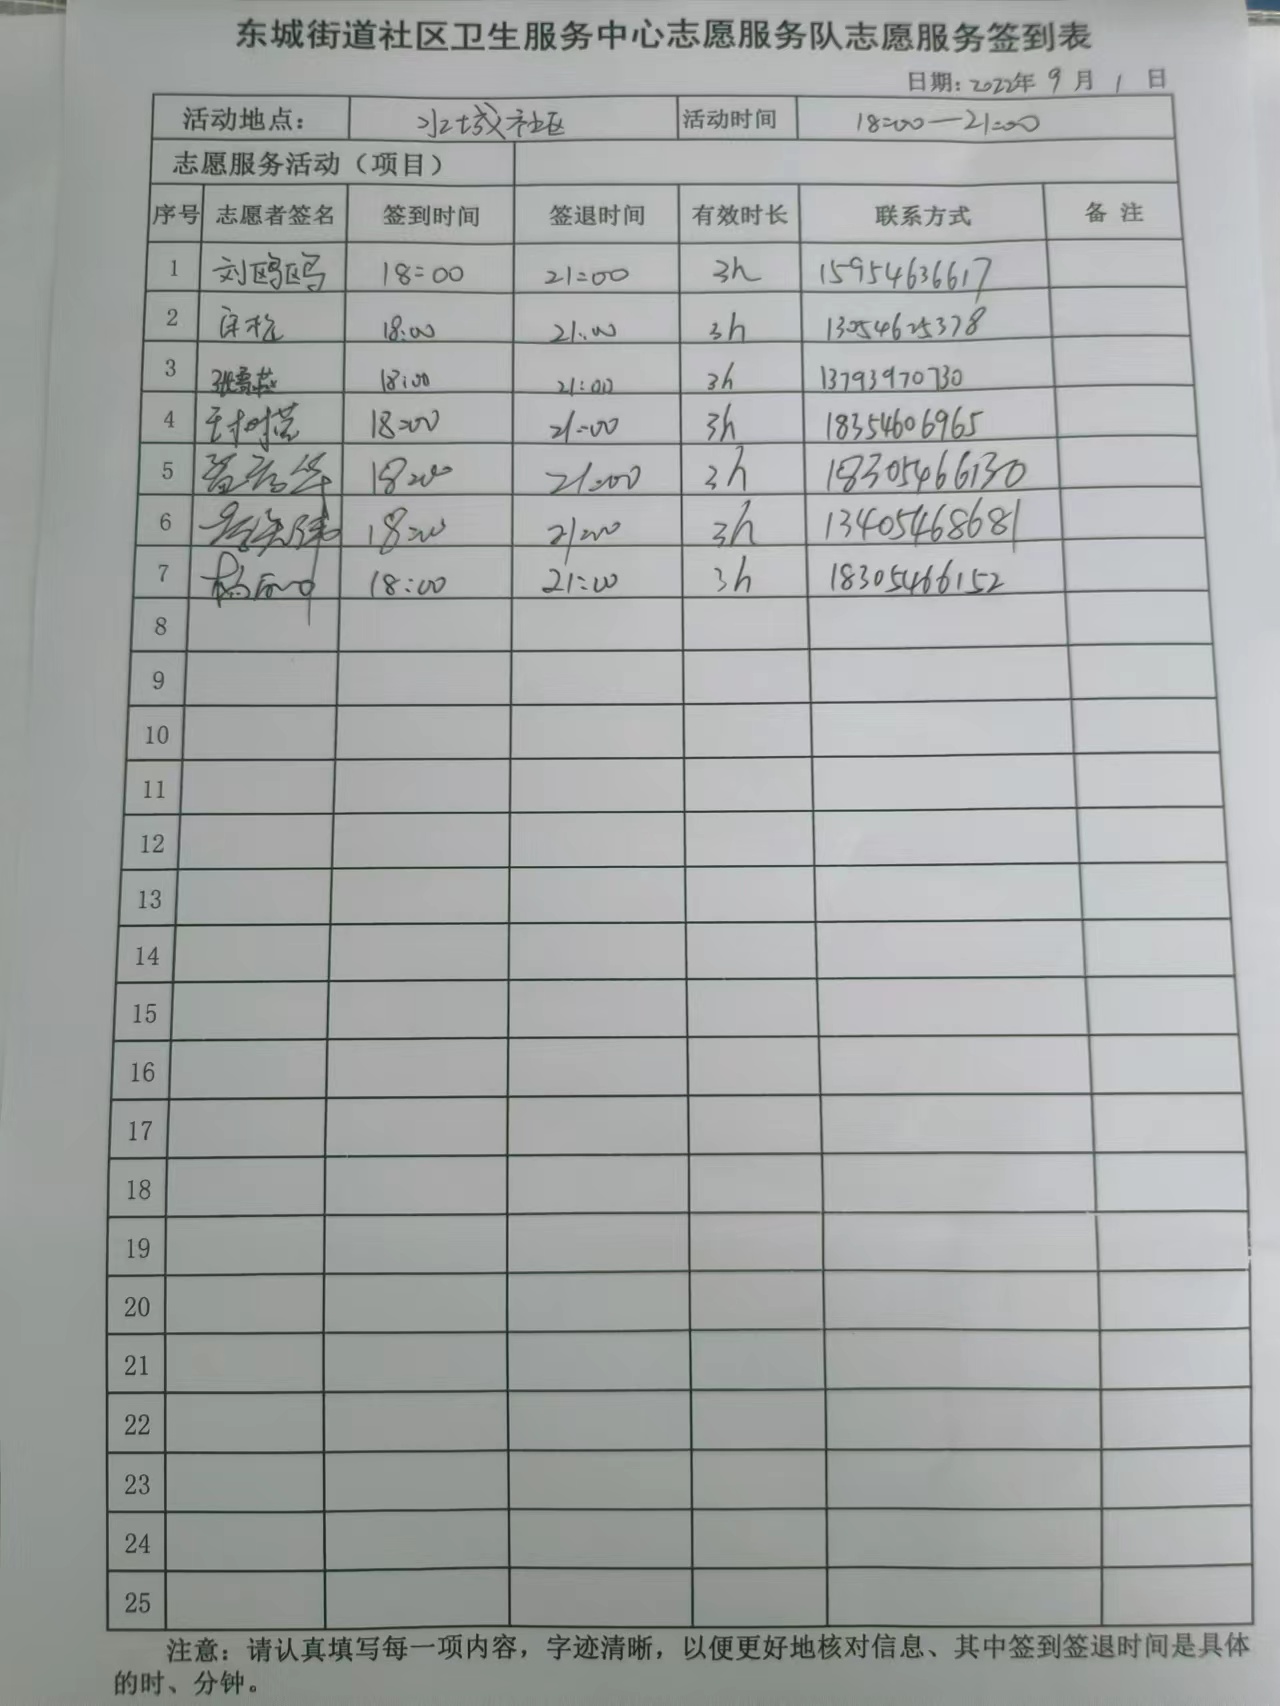 东城街道社区卫生服务中心志愿服务队志愿服务签到表
日期：2022年 9 月 1 日
活动地点： 水城社区 活动时间 18:00—21:00
志愿服务活动（项目）
序号 志愿者签名 签到时间 签退时间 有效时长 联系方式 备 注
1 刘鸥鸥 18:00 21:00 3h 15954636617
2 18:00 21:00 3h 13054625378
3 18:00 21:00 3h 13793970730
4 18:00 21:00 3h 18354606965
5 18:00 21:00 3h 18305466130
6 18:00 21:00 3h 13405468681
7 18:00 21:00 3h 18305466152
8
9
10
11
12
13
14
15
16
17
18
19
20
21
22
23
24
25
注意：请认真填写每一项内容，字迹清晰，以便更好地核对信息、其中签到签退时间是具体
的时、分钟。